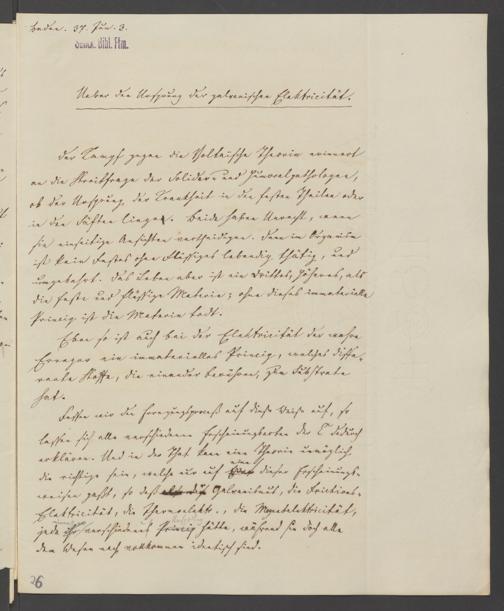 Baden. 37. Jun. 3.
Senck. Bibl. Ffm.
Ueber den Ursprung der galvanischen Elektricität.
Der Kampf gegen die Voltaische Theorie erinnert
an die Streitfrage der Solidar- und Humoralpathologen,
ob der Ursprung der Krankheit in den festen Theilen oder
in den Säften liege. Beide haben Unrecht, wenn
sie einseitige Ansichten vertheidigen. Denn im Organism
ist kein Festes ohne Flüssiges lebendig thätig, und
umgekehrt. Das Leben aber ist ein Drittes, Höheres, als
die feste und flüssige Materie; ohne dieses immaterielle
Princip ist die Materie todt.
Eben so ist auch bei der Elektricität der wahre
Erreger ein immaterielles Princip, welches diffe-
rente Stoffe, die einander berühren, zum Substrate
hat.
Fassen wir die Erregungsprozeß auf diese Weise auf, so
lassen sich alle verschiedenen Erscheinungsarten der E. dadurch
erklären. Und in der That kann eine Theorie unmöglich
die richtige sein, welche nur auf eine dieser Erscheinungs-
weisen paßt, so daß Galvanismus, die Frictions-
Elektricität, die Thermoelektr., die Magnetelektricität,
jede ihr verschiedenes Princip hätte, während sie doch alle
dem Wesen nach vollkommen identisch sind.
26